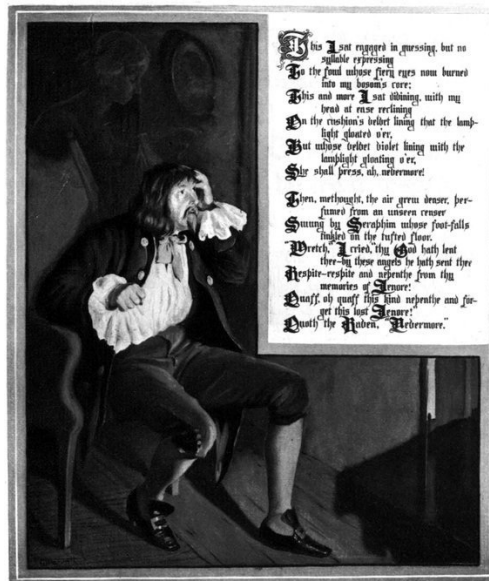 This I sat engaged in guessing, but no
syllable expressing
To the fowl whose fiery eyes now burned
into my bosom's core;
This and more I sat divining, with my
head at ease reclining
On the cushion's velvet lining that the lamp-
light gloated o'er,
But whose velvet violet lining with the
lamplight gloating o'er,
She shall press, ah, nevermore!
Then, methought, the air grew denser, per-
fumed from an unseen censer
Swung by Seraphim whose foot-falls
tinkled on the tufted floor.
"Wretch," I cried, "thy God hath lent
thee-by these angels he hath sent thee
Respite-respite and nepenthe from thy
memories of Lenore!
Quaff, oh quaff this kind nepenthe and for-
get this lost Lenore!"
Quoth the Raven, "Nevermore."